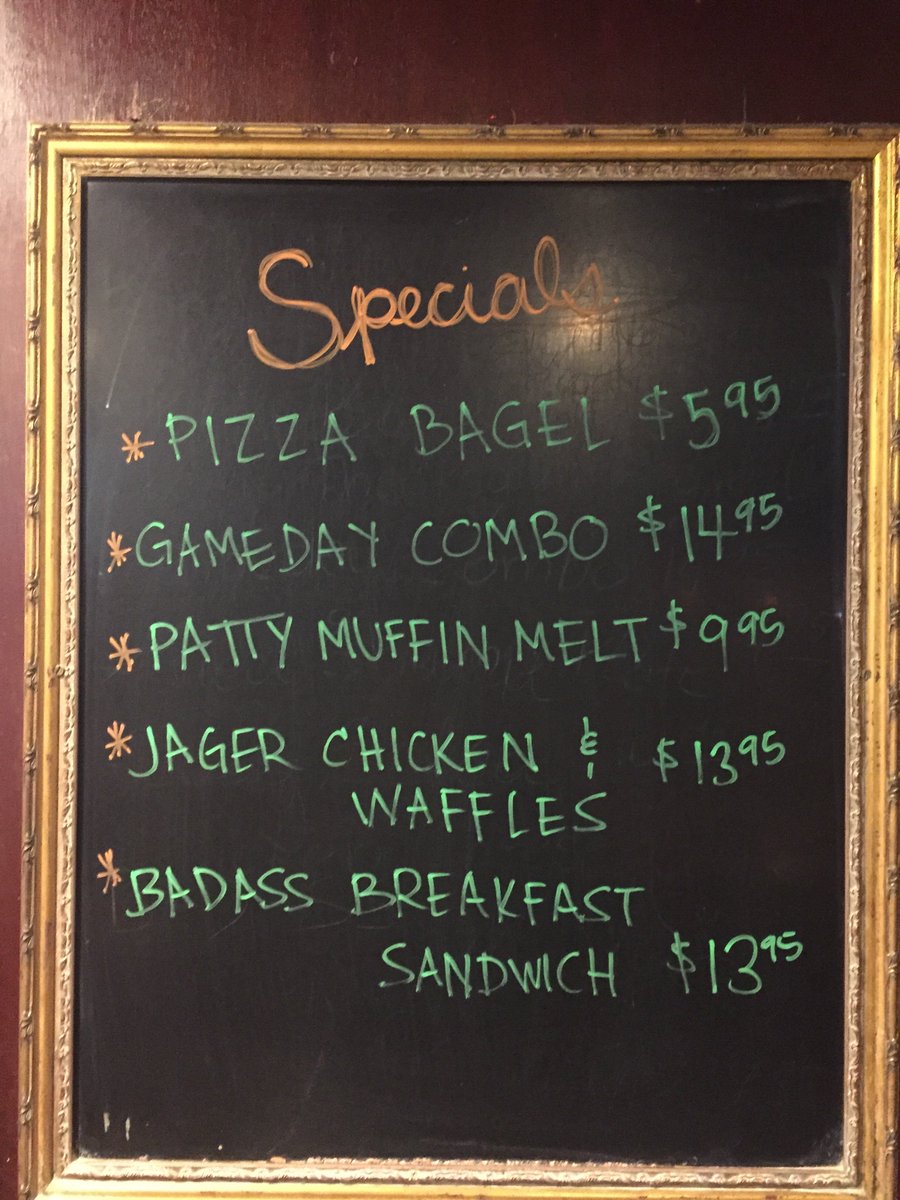 Specials
* PIZZA BAGEL $5.95
* GAMEDAY COMBO $14.95
* PATTY MUFFIN MELT $9.95
* JAGER CHICKEN & $13.95
WAFFLES
* BADASS BREAKFAST
SANDWICH $13.95